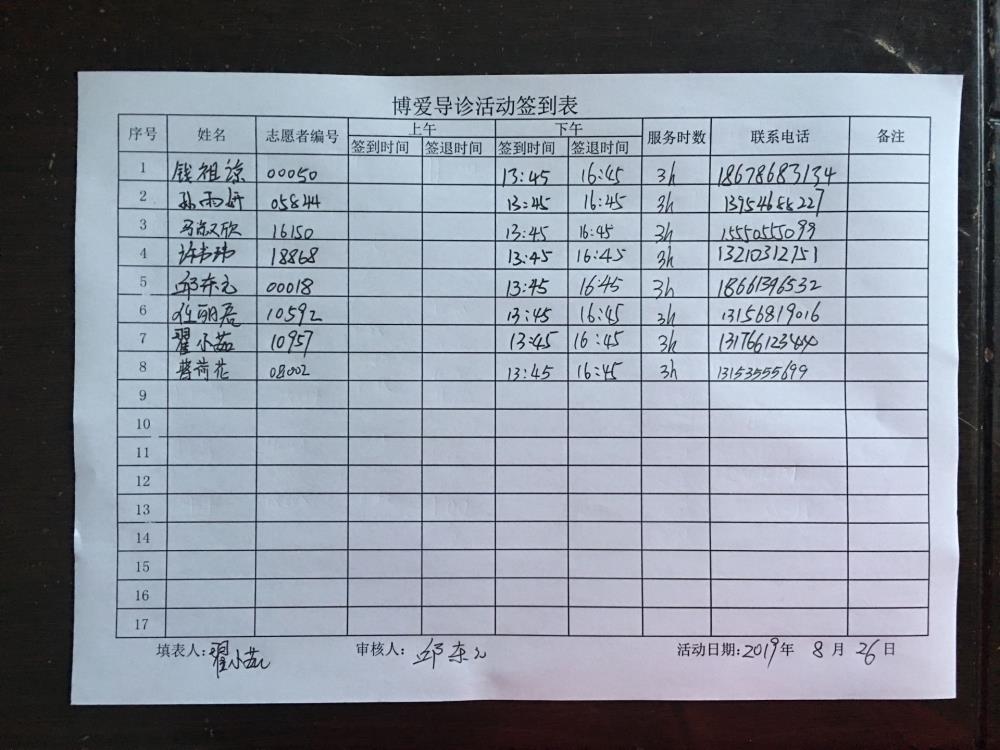 博爱导诊活动签到表
序号 姓名 志愿者编号 上午 下午 服务时数 联系电话 备注
签到时间 签退时间 签到时间 签退时间
1 钱祖谅 00050 13:45 16:45 3h 18678683134
2 孙雨妍 05844 13:45 16:45 3h 13954688227
3 16150 13:45 16:45 3h 15550555099
4 许书玮 18868 13:45 16:45 3h 13210312751
5 邱东元 00018 13:45 16:45 3h 18661396532
6 任丽君 10592 13:45 16:45 3h 13156819016
7 翟小茹 10957 13:45 16:45 3h 13176612344
8 荷花 08002 13:45 16:45 3h 13153555699
9
10
11
12
13
14
15
16
17
填表人:翟小茹 审核人:邱东元 活动日期:2019年 8 月 26 日